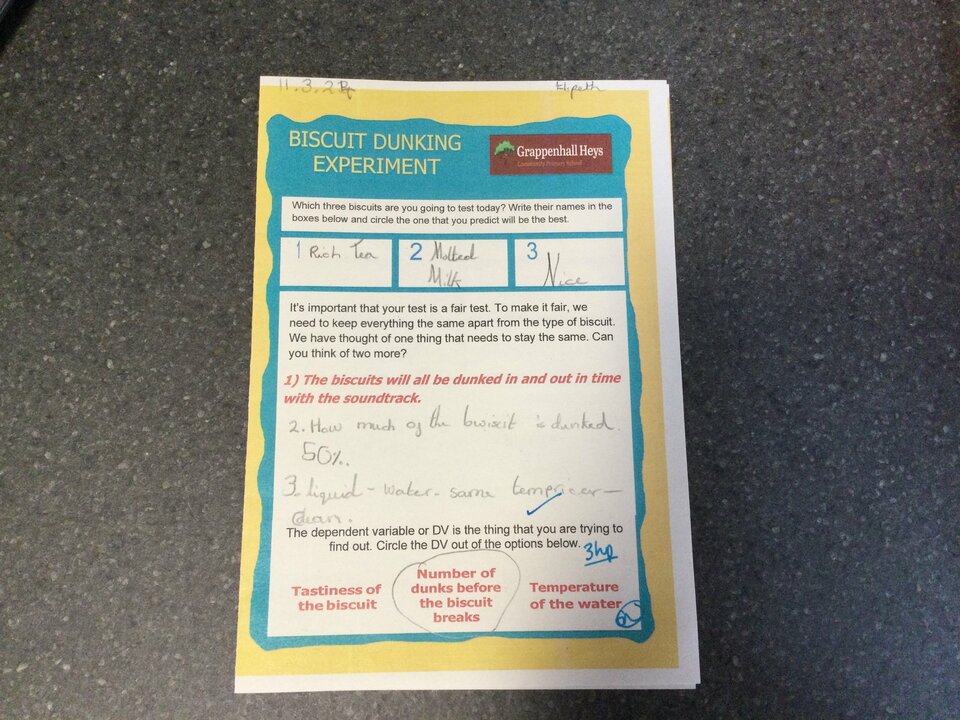 11.3.2
BISCUIT DUNKING
EXPERIMENT
Grappenhall Heys
Community Primary School
Which three biscuits are you going to test today? Write their names in the
boxes below and circle the one that you predict will be the best.
1 Rich Tea
2 Malted
Milk
3
Nice
It's important that your test is a fair test. To make it fair, we
need to keep everything the same apart from the type of biscuit.
We have thought of one thing that needs to stay the same. Can
you think of two more?
1) The biscuits will all be dunked in and out in time
with the soundtrack.
2. How much of the bwiscit is dunked.
50%.
3. liquid - water - same tempricer -
clean.
The dependent variable or DV is the thing that you are trying to
find out. Circle the DV out of the options below.
3hp
Tastiness of
the biscuit
Number of
dunks before
the biscuit
breaks
Temperature
of the water